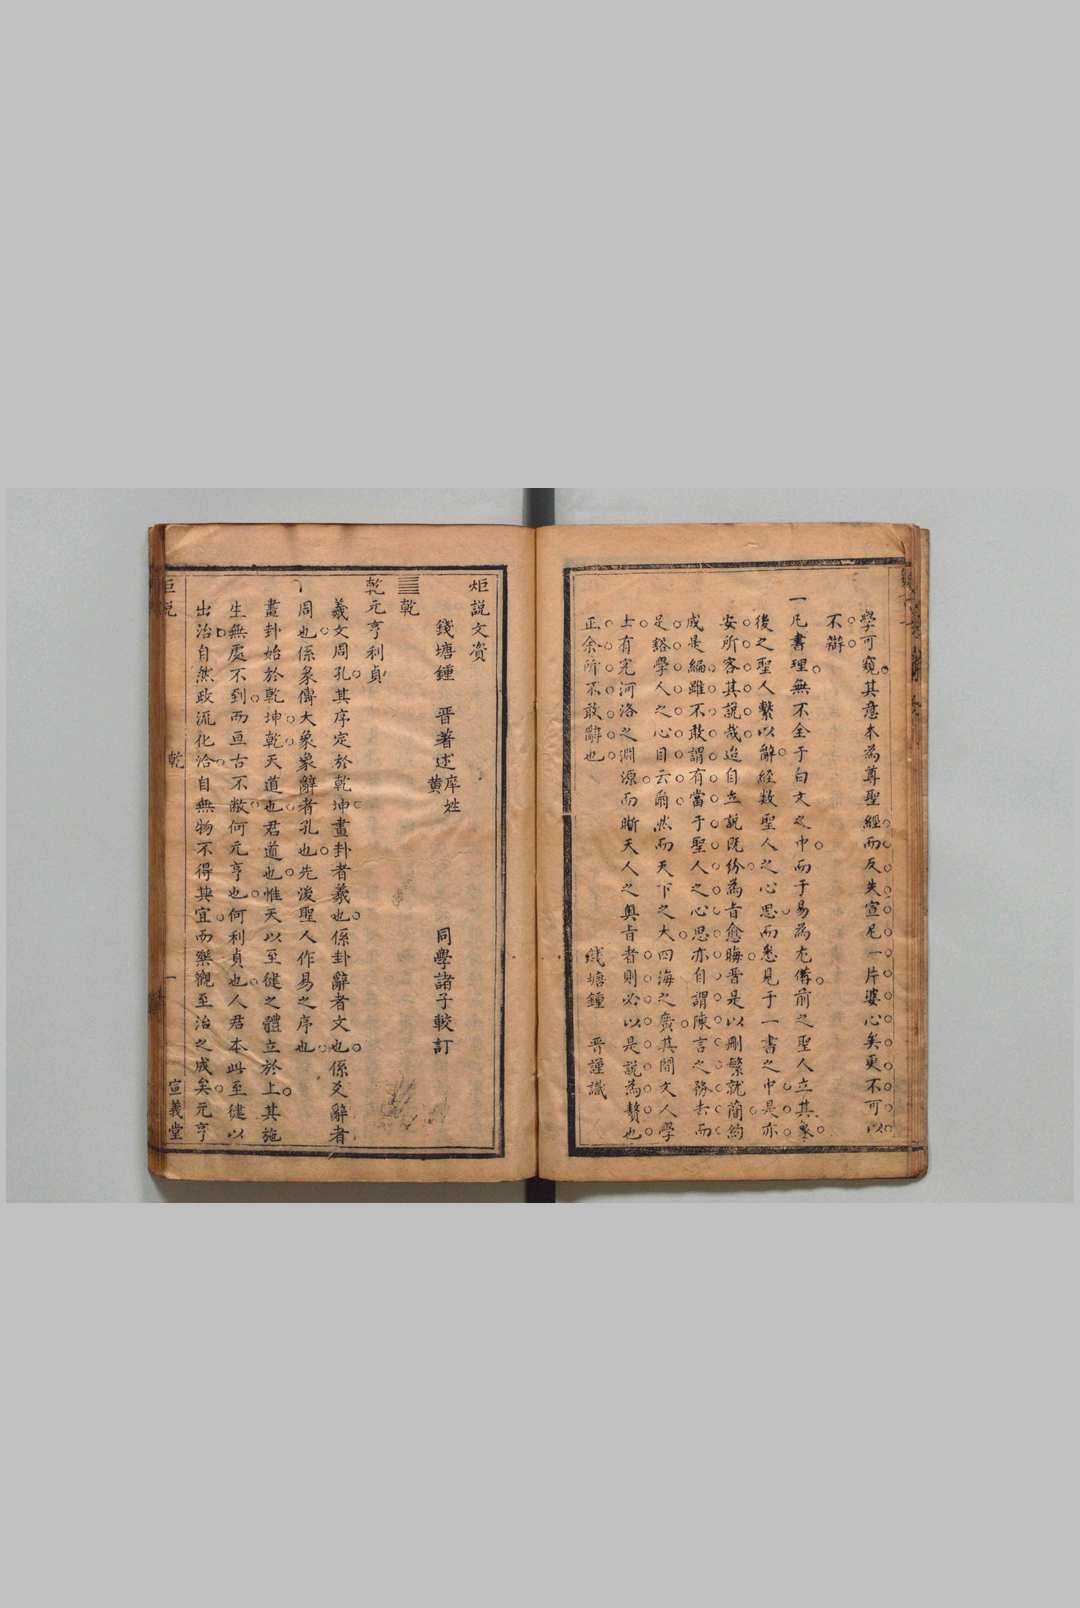 學可窺其意本為尊聖經而反失宣尼一片婆心矣更不可以
不辯
一凡書理無不全于白文之中而于易為尤備前之聖人立其象
後之聖人繫以辭經數聖人之心思而悉見于一書之中是亦
安所容其說哉迨自立說既紛為旨愈晦晋是以刪繁就蕳約
成是編雖不敢謂有當于聖人之心思亦自謂陳言之務去而
足豁學人之心目云爾然而天下之大四海之廣其間文人學
士有究河洛之淵源而晣天人之奥旨者則必以是説為贅也
正余所不敢辭也
錢塘鍾 晋謹識
炬説文資
錢塘鍾 晋著述 庠姓黄 同學諸子較訂
䷀乾
乾元亨利貞
羲文周孔其序定於乾坤畫卦者羲也係卦辭者文也係爻辭者
周也係彖傳大象象辭者孔也先後聖人作易之序也
畫卦始於乾坤乾天道也君道也惟天以至健之體立於上其施
生無處不到而亘古不敝何元亨也何利貞也人君本此至健以
出治自然政流化洽自無物不得其宜而樂觀至治之成矣元亨
炬説
乾
一
宣義堂